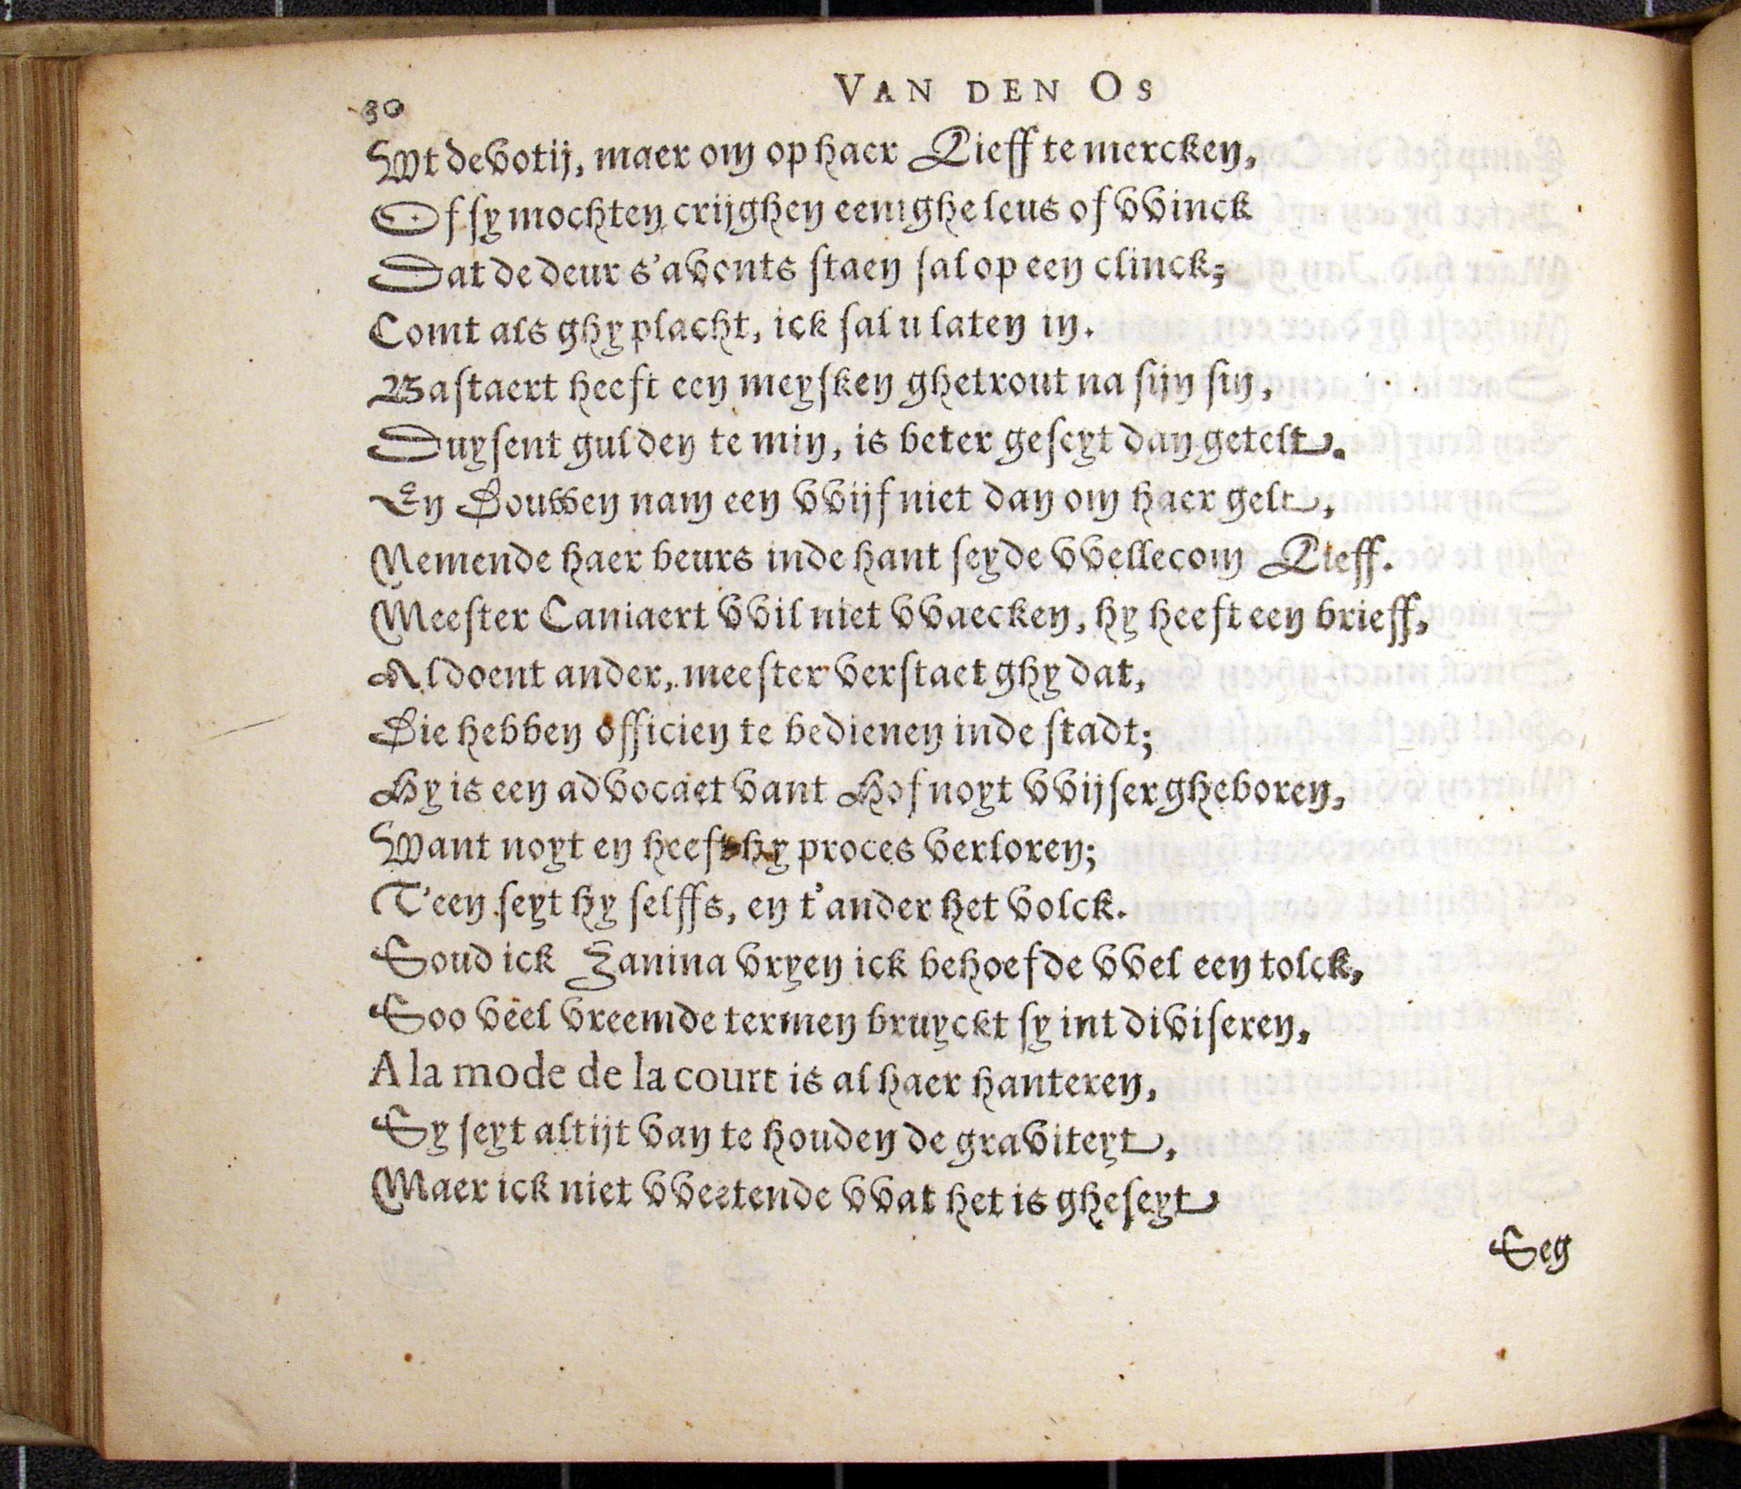 30
VAN DEN OS
Wt devotij, maer om op haer Lieff te mercken,
Of sy mochten crijghen eenighe leus of vvinck
Dat de deur s'avonts staen sal op een clinck;
Comt als ghy placht, ick sal u laten in.
Bastaert heeft een meysken ghetrout na sijn sin,
Duysent gulden te min, is beter geseyt dan getelt.
En Douwen nam een vvijf niet dan om haer gelt,
Nemende haer beurs inde hant seyde vvellecom Lieff.
Meester Caniaert vvil niet vvaecken, hy heeft een brieff,
Al doent ander, meester verstaet ghy dat,
Die hebben officien te bedienen inde stadt;
Hy is een advocaet vant Hof noyt vvijser gheboren,
Want noyt en heeft hy proces verloren;
T'een seyt hy selffs, en t'ander het volck.
Soud ick Zanina vryen ick behoefde vvel een tolck,
Soo veel vreemde termen bruyckt sy int diviseren,
A la mode de la court is al haer hanteren,
Sy seyt altijt van te houden de graviteyt,
Maer ick niet vveetende vvat het is gheseyt
Seg